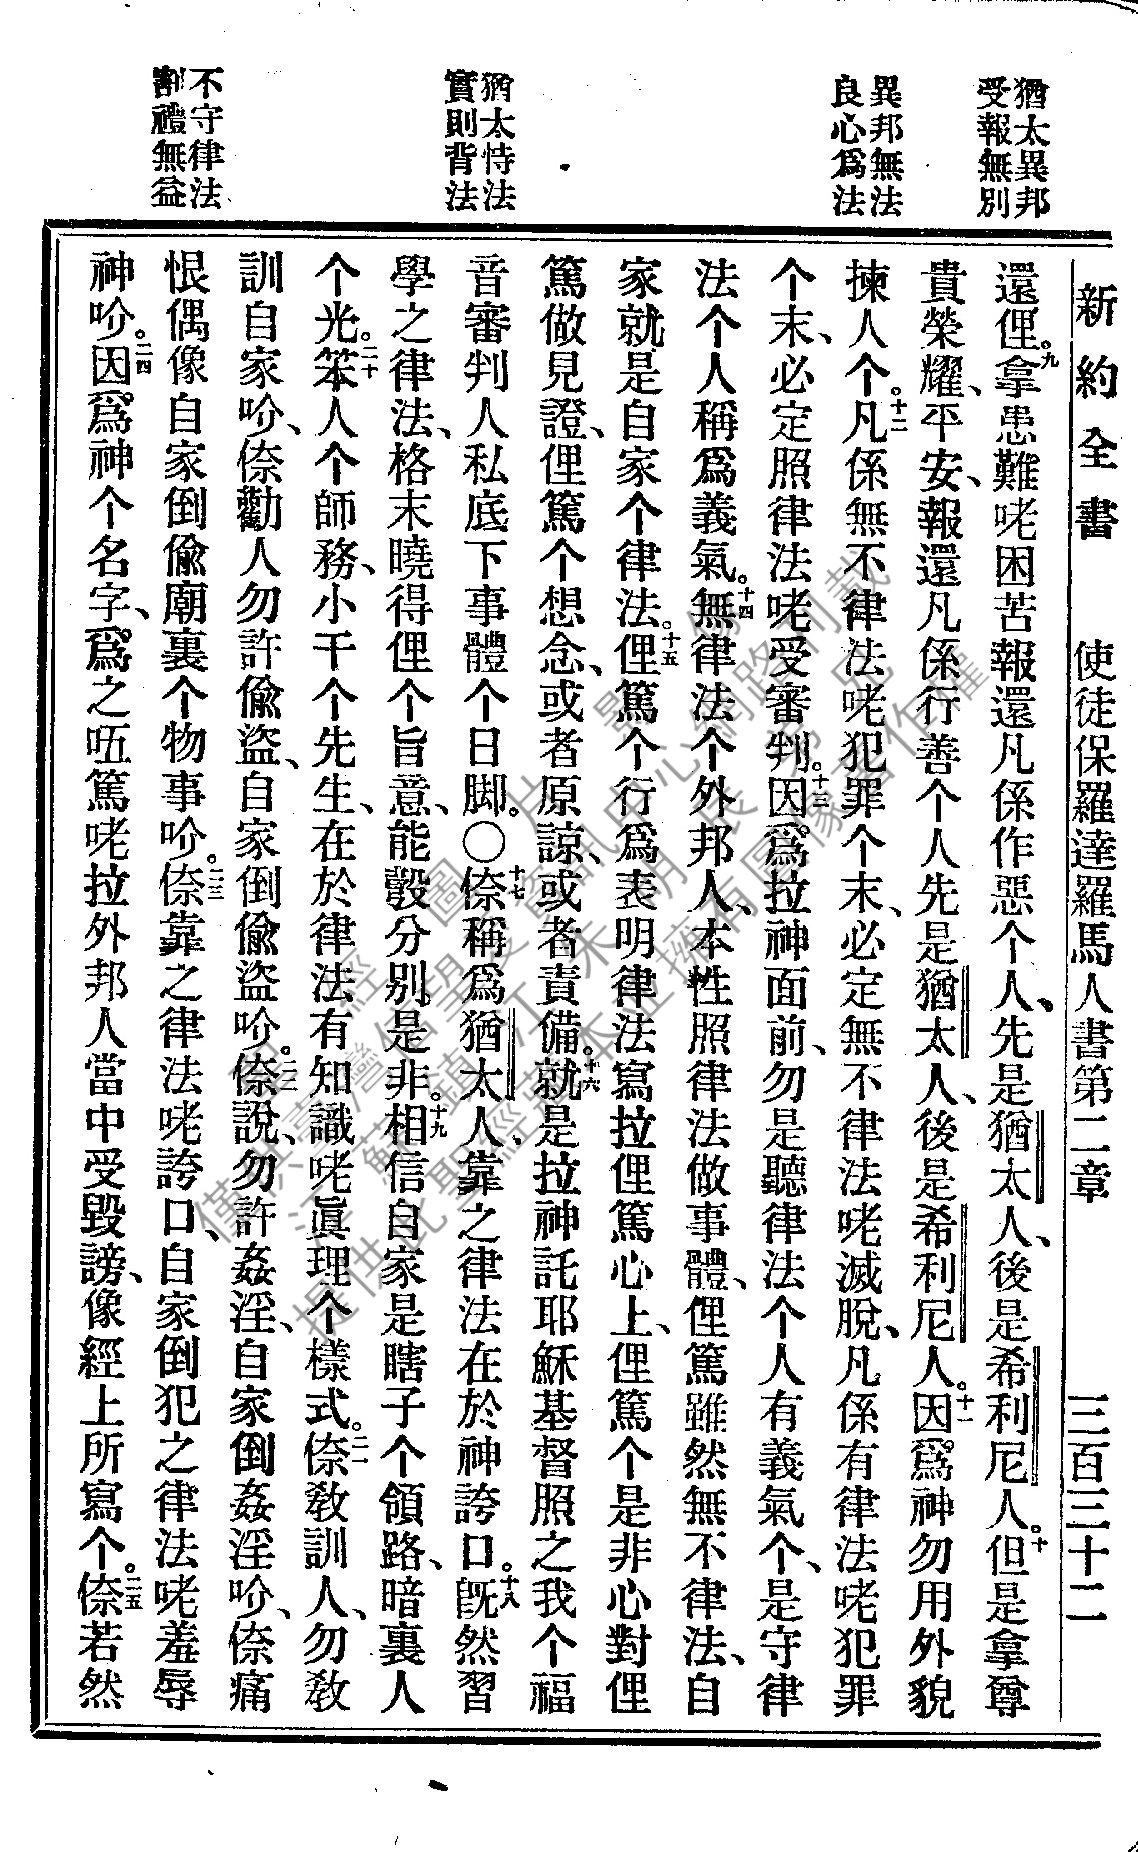 新約全書 使徒保羅達羅馬人書第二章 三百三十二
猶太異邦
受報無別
異邦無法
良心爲法
猶太恃法
實則背法
不守律法
割禮無益
還俚。九拿患難咾困苦報還凡係作惡个人、先是猶太人、後是希利尼人。十但是拿尊
貴榮耀、平安、報還凡係行善个人先是猶太人、後是希利尼人。十一因爲神勿用外貌
揀人个。十二凡係無不律法咾犯罪个末、必定無不律法咾滅脫、凡係有律法咾犯罪
个末、必定照律法咾受審判。十三因爲拉神面前、勿是聽律法个人有義氣个、是守律
法个人稱爲義氣。十四無律法个外邦人、本性照律法做事體、俚篤雖然無不律法、自
家就是自家个律法。十五俚篤个行爲表明律法寫拉俚篤心上、俚篤个是非心對俚
篤做見證、俚篤个想念、或者原諒、或者責備。十六就是拉神託耶穌基督照之我个福
音審判人私底下事體个日脚。〇十七倷稱爲猶太人、靠之律法在於神誇口。十八旣然習
學之律法、格末曉得俚个旨意、能彀分別是非。十九相信自家是瞎子个領路、暗裏人
个光。二十笨人个師務、小干个先生、在於律法有知識咾眞理个樣式。二一倷敎訓人、勿敎
訓自家吤、倷勸人勿許偷盜、自家倒偷盜吤。二二倷說、勿許姦淫、自家倒姦淫吤、倷痛
恨偶像自家倒偷廟裏个物事吤。二三倷靠之律法咾誇口、自家倒犯之律法咾羞辱
神吤。二四因爲神个名字、爲之㕶篤咾拉外邦人當中受毀謗、像經上所寫个。二五倷若然